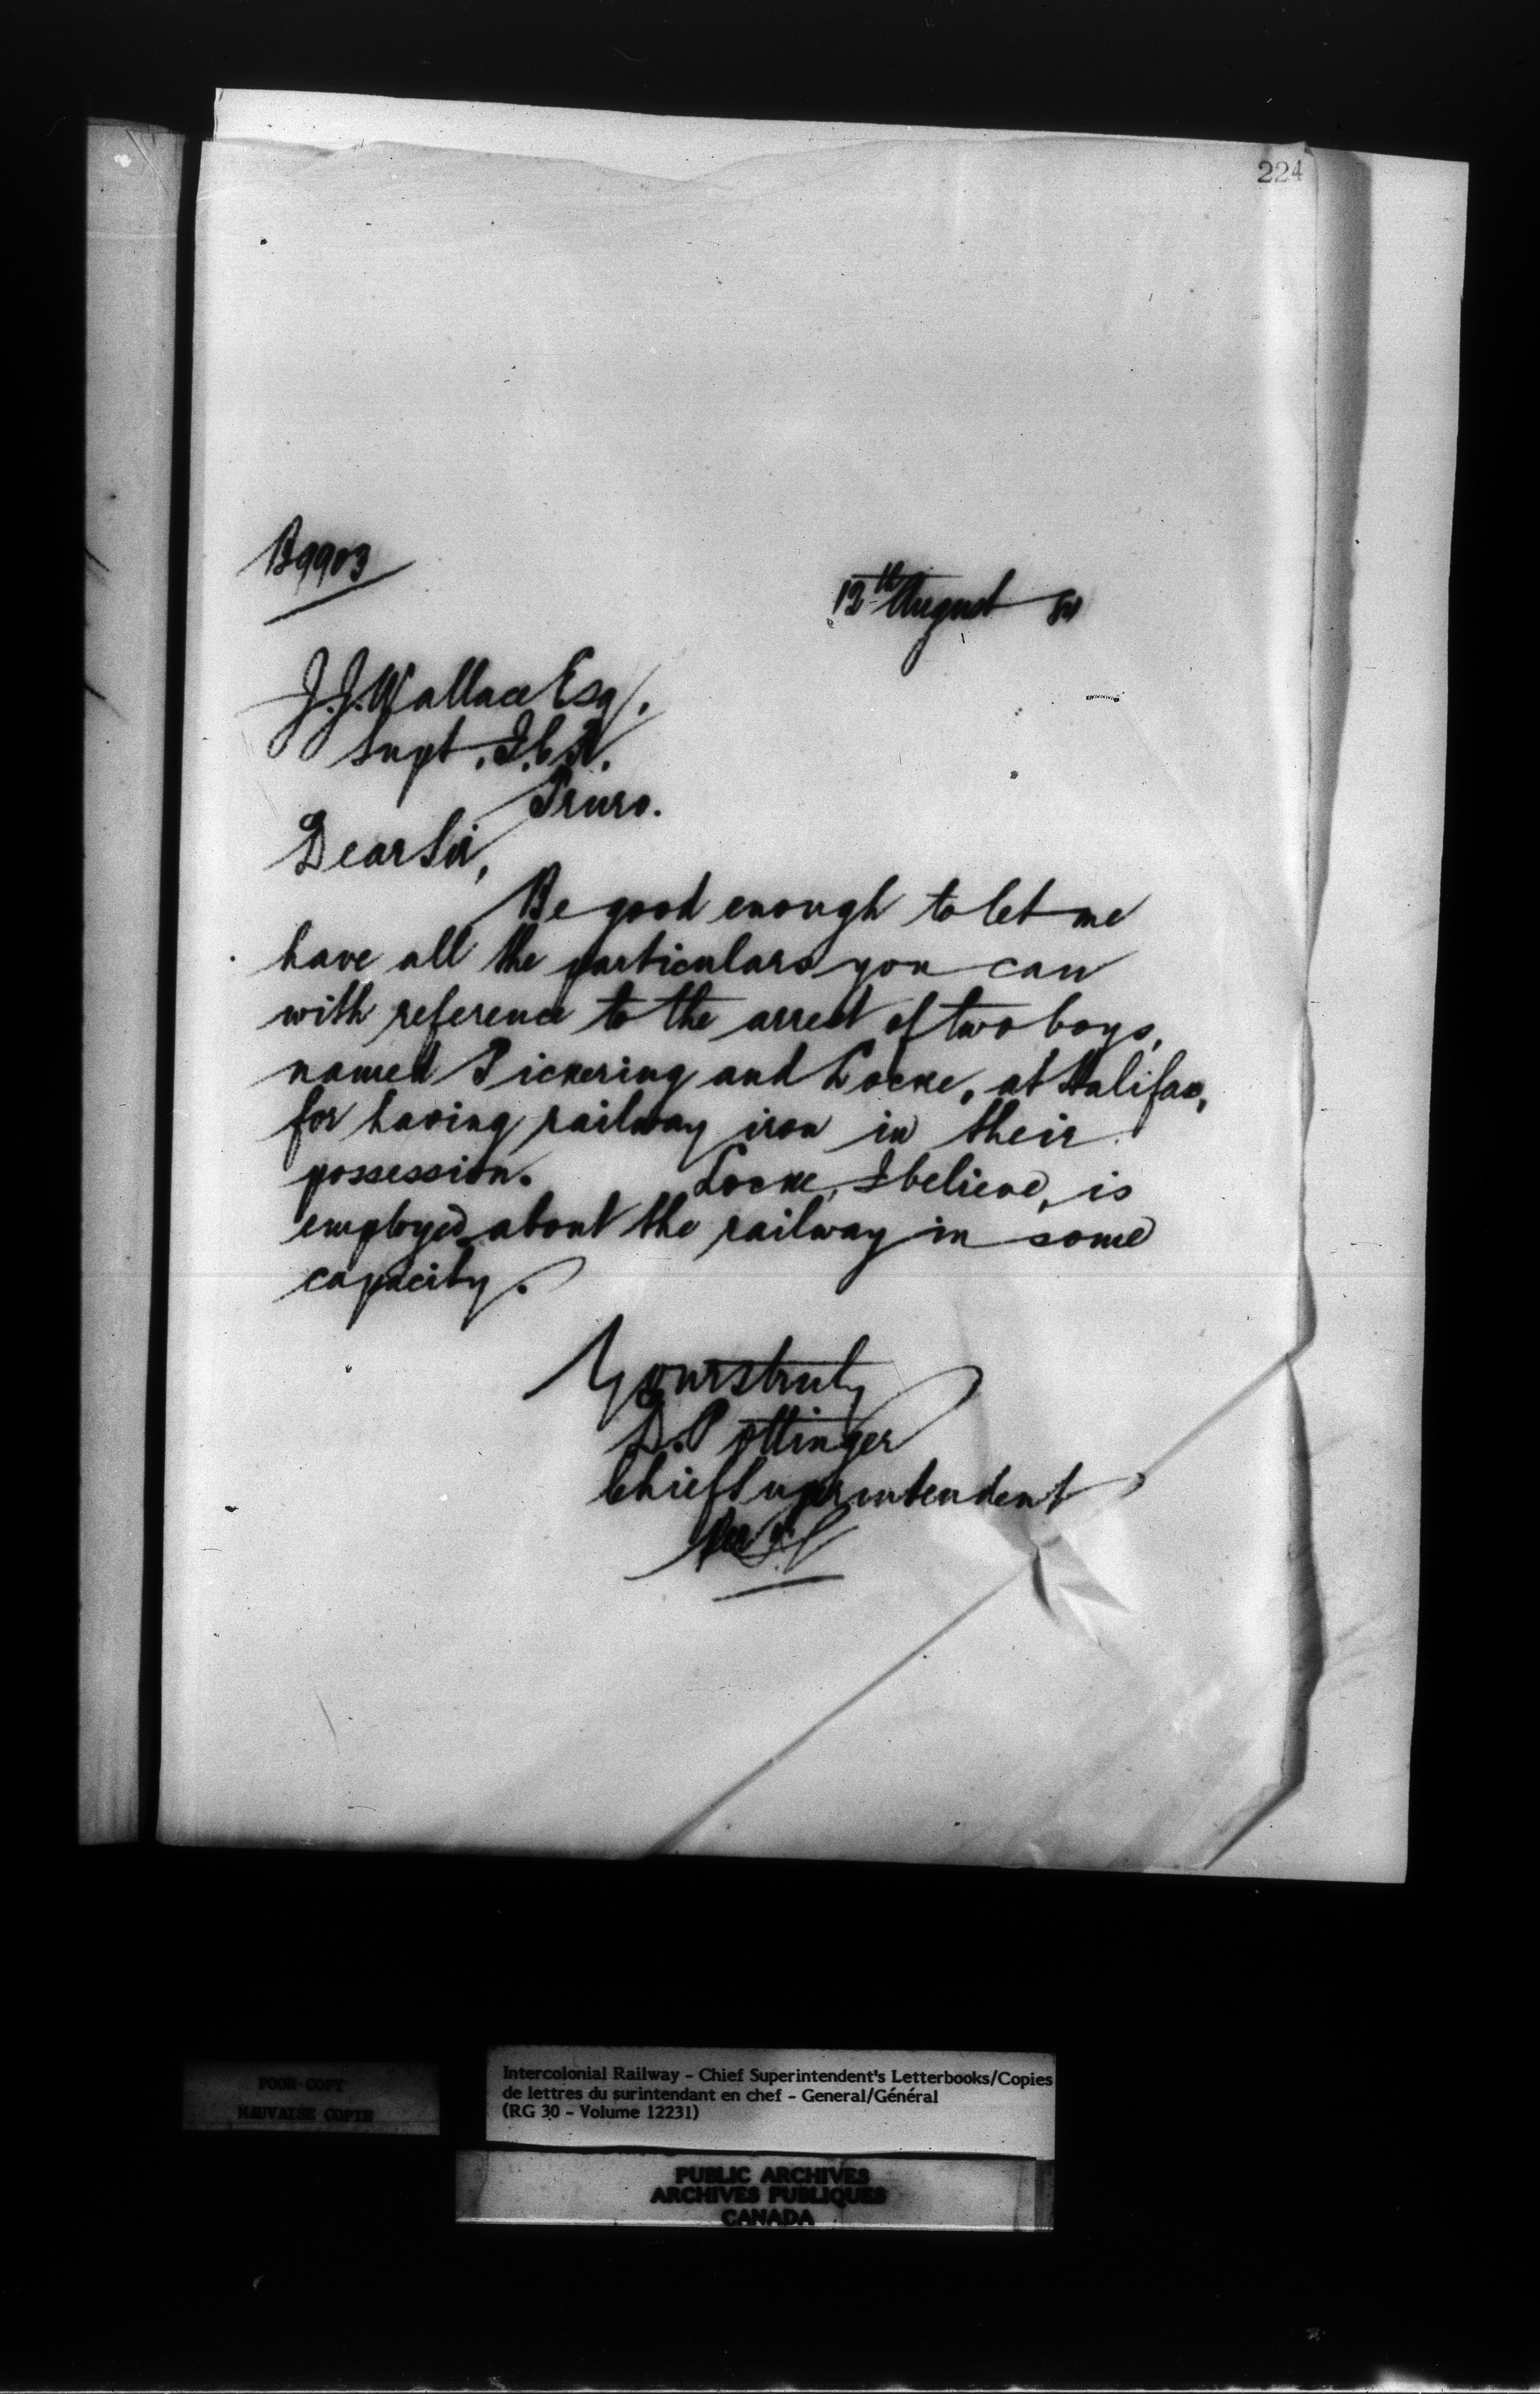 224
B9903
12th August
J.J. Wallace Esq.
Supt. I.C.R.
Truro.
Dear Sir,
Be good enough to let me
have all the particulars you can
with reference to the arrest of two boys,
named Pickering and Locke, at Halifax,
for having railway iron in their
possession. Locke, I believe, is
employed about the railway in some
capacity.
Yours truly
D. Pottinger
Chief Superintendent
POOR COPY
MAUVAISE COPIE
Intercolonial Railway - Chief Superintendent's Letterbooks/Copies
de lettres du surintendant en chef - General/Général
(RG 30 - Volume 12231)
PUBLIC ARCHIVES
ARCHIVES PUBLIQUES
CANADA